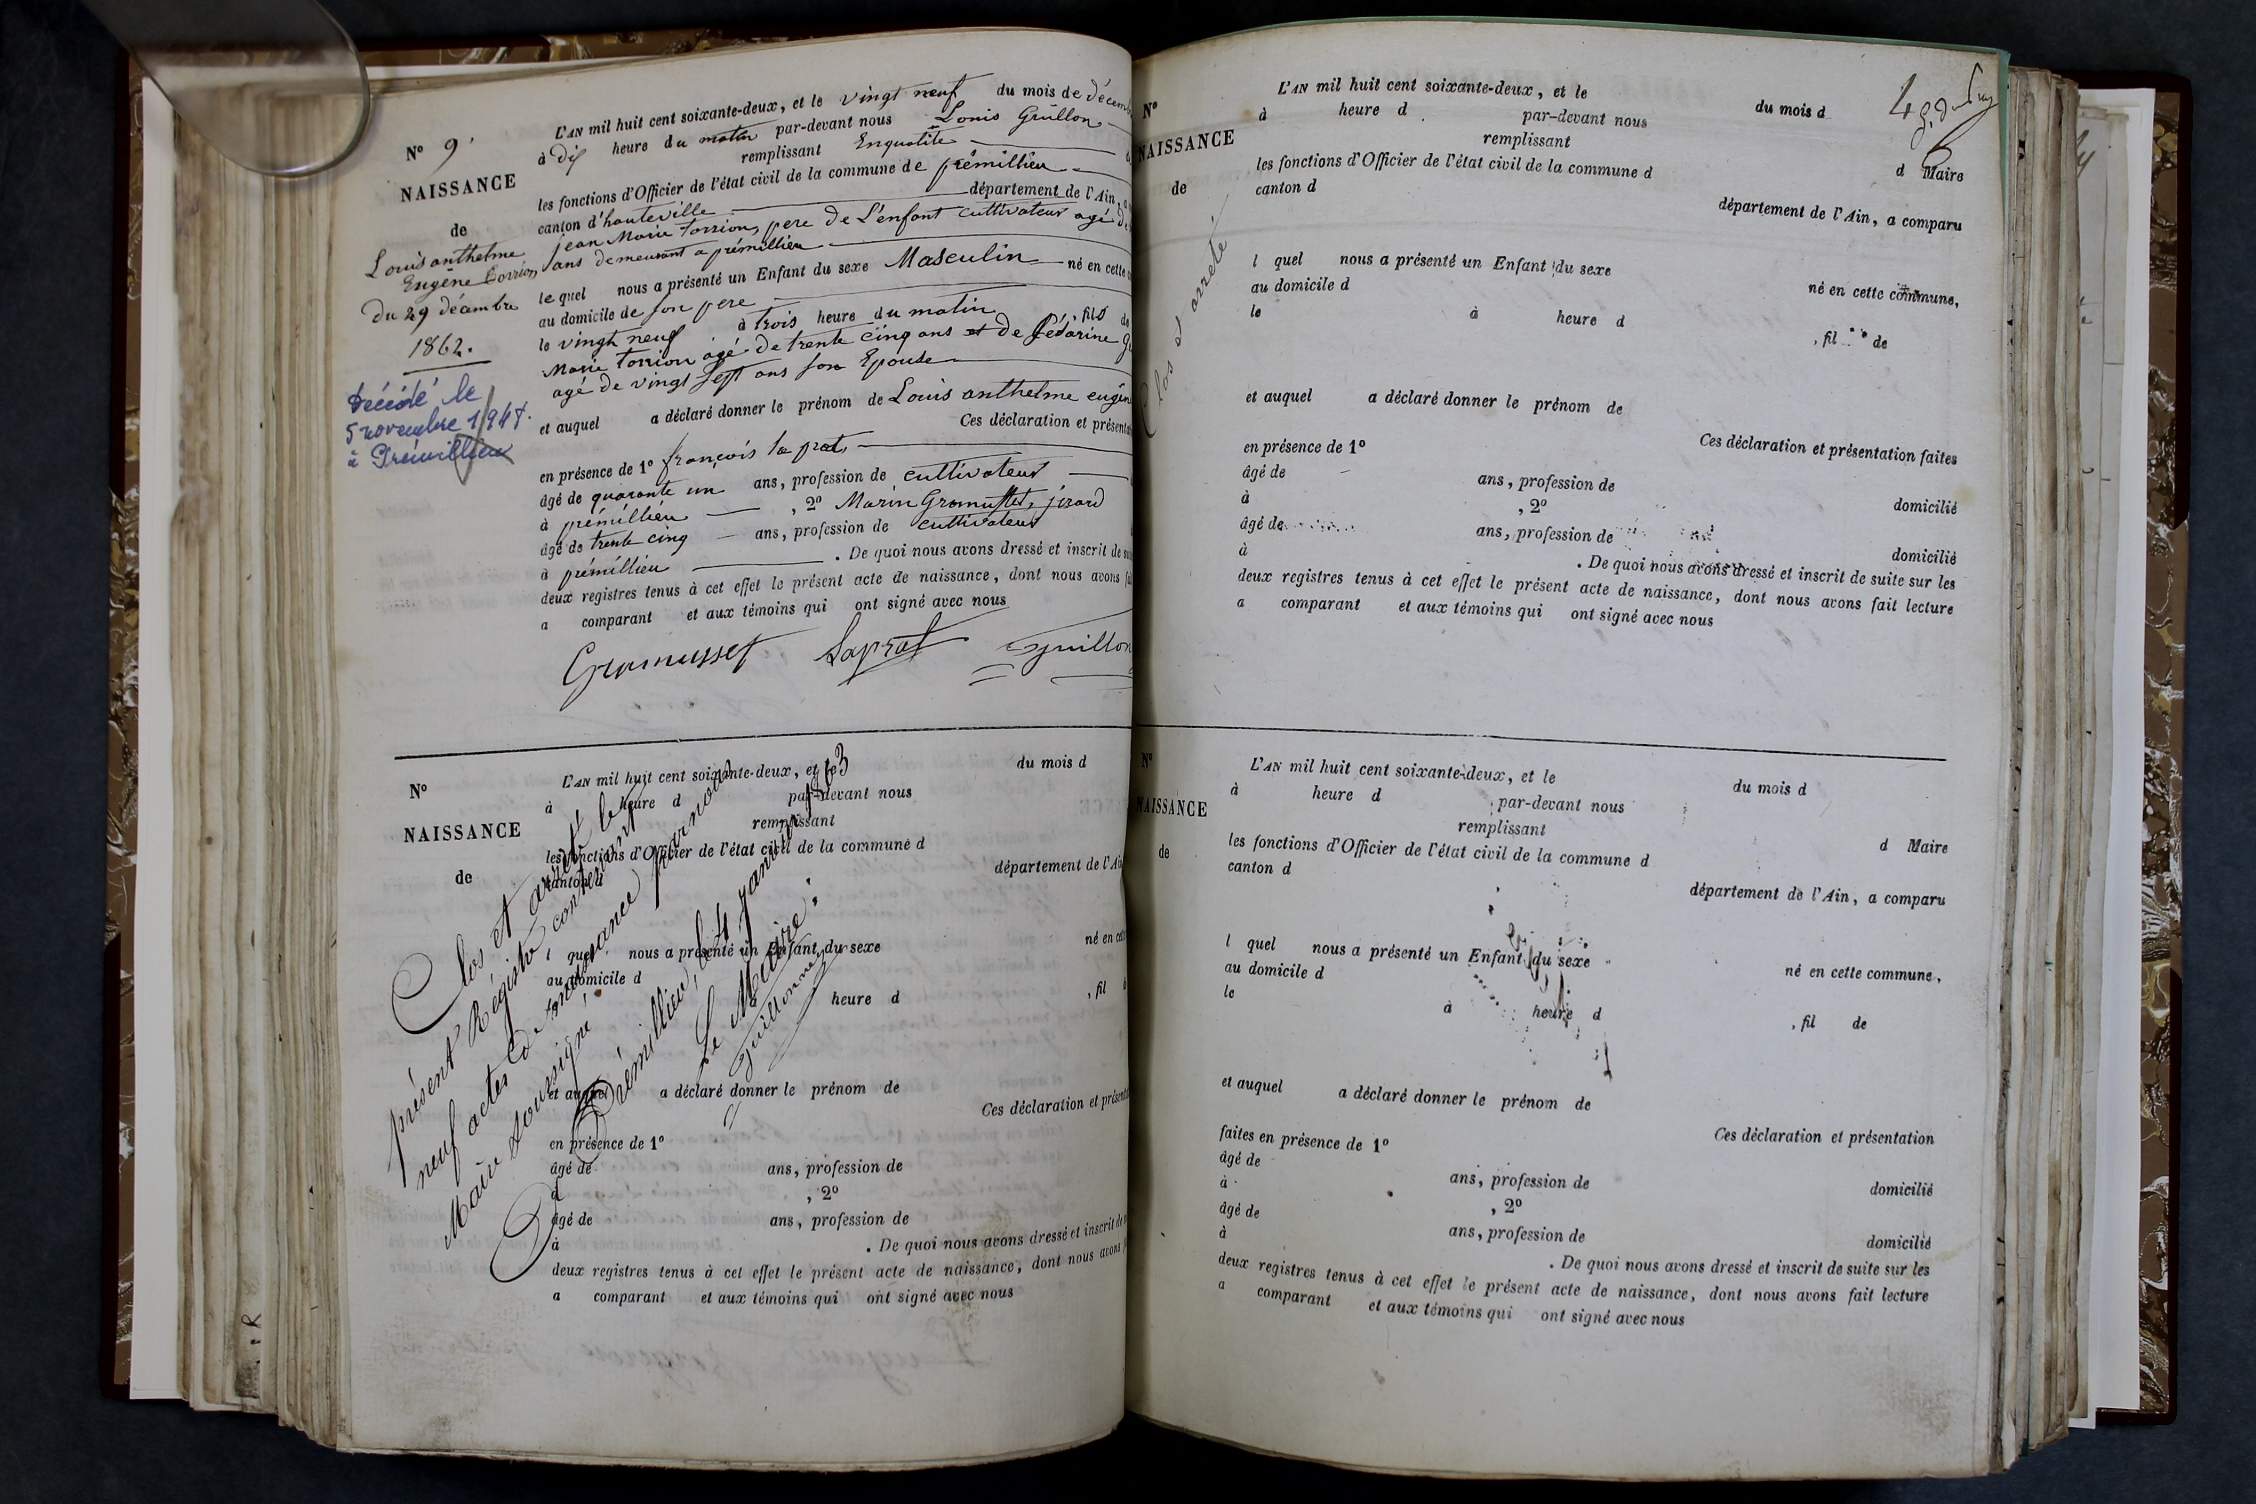 N° 9
NAISSANCE
de
Louis anthelme
Eugène Torrion
du 29 décembre
1862.
décédé le
5 novembre 194
à Prémillieu
L'AN mil huit cent soixante-deux, et le vingt neuf du mois de décem
à dix heure du matin par-devant nous Louis Guillon
remplissant
les fonctions d'Officier de l'état civil de la commune de prémillieu
canton d'hauteville département de l'Ain,
jean Marie torrion, pere de L'enfant cultivateur agé de
ans demeurant a prémillieu
le quel nous a présenté un Enfant du sexe Masculin né en cette
au domicile de son pere
le vingt neuf à trois heure du matin, fils de
Marie torrion agé de trente cinq ans et de
agé de vingt sept ans son Epouse
et auquel a déclaré donner le prénom de Louis anthelme eugèn
Ces déclaration et présenta
en présence de 1° françois la prat
âgé de quarante un ans, profession de cultivateur
à prémillieu , 2° Marin Gramusset, jirard
âgé de trente cinq ans, profession de cultivateur
à prémillieu . De quoi nous avons dressé et inscrit de
deux registres tenus à cet effet le présent acte de naissance, dont nous avons
a comparant et aux témoins qui ont signé avec nous
Gramusset Laprat Guillon
N°
NAISSANCE
de
L'AN mil huit cent soixante-deux, et le du mois d
à heure d par-devant nous
remplissant
les fonctions d'Officier de l'état civil de la commune d
canton d département de l'Ai
l quel nous a présenté un Enfant du sexe né en cet
au domicile d
heure d , fil
et auquel a déclaré donner le prénom de
Ces déclaration et présent
en présence de 1°
âgé de ans, profession de
à , 2°
âgé de ans, profession de
à . De quoi nous avons dressé et inscrit de
deux registres tenus à cet effet le présent acte de naissance, dont nous avons
a comparant et aux témoins qui ont signé avec nous
Clos et arreté le
présent Régistre contenant
neuf actes de naissance par nous
Maire soussigné
Prémillieu, le 4 janvier 1863
Le Maire:
Guillon
N°
NAISSANCE
de
Clos et arreté
L'AN mil huit cent soixante-deux, et le du mois d
à heure d par-devant nous
remplissant d Maire
les fonctions d'Officier de l'état civil de la commune d
canton d département de l'Ain, a comparu
l quel nous a présenté un Enfant du sexe né en cette commune,
au domicile d
le à heure d , fil de
et auquel a déclaré donner le prénom de
Ces déclaration et présentation faites
en présence de 1°
âgé de ans, profession de domicilié
à , 2°
âgé de ans, profession de domicilié
à . De quoi nous avons dressé et inscrit de suite sur les
deux registres tenus à cet effet le présent acte de naissance, dont nous avons fait lecture
a comparant et aux témoins qui ont signé avec nous
N°
NAISSANCE
de
L'AN mil huit cent soixante-deux, et le du mois d
à heure d par-devant nous
remplissant d Maire
les fonctions d'Officier de l'état civil de la commune d
canton d département de l'Ain, a comparu
l quel nous a présenté un Enfant du sexe né en cette commune,
au domicile d
le à heure d , fil de
et auquel a déclaré donner le prénom de
Ces déclaration et présentation
faites en présence de 1°
âgé de ans, profession de domicilié
à , 2°
âgé de ans, profession de domicilié
à . De quoi nous avons dressé et inscrit de suite sur les
deux registres tenus à cet effet le présent acte de naissance, dont nous avons fait lecture
a comparant et aux témoins qui ont signé avec nous